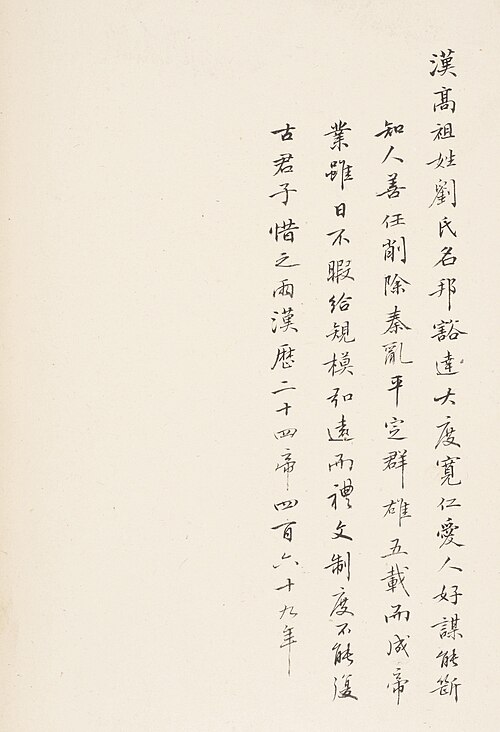 漢高祖姓劉氏名邦豁達大度寬仁愛人好謀能斷
知人善任削除秦亂平定群雄五載而成帝
業雖日不暇給規模弘遠而禮文制度不能復
古君子惜之兩漢歷二十四帝四百六十九年